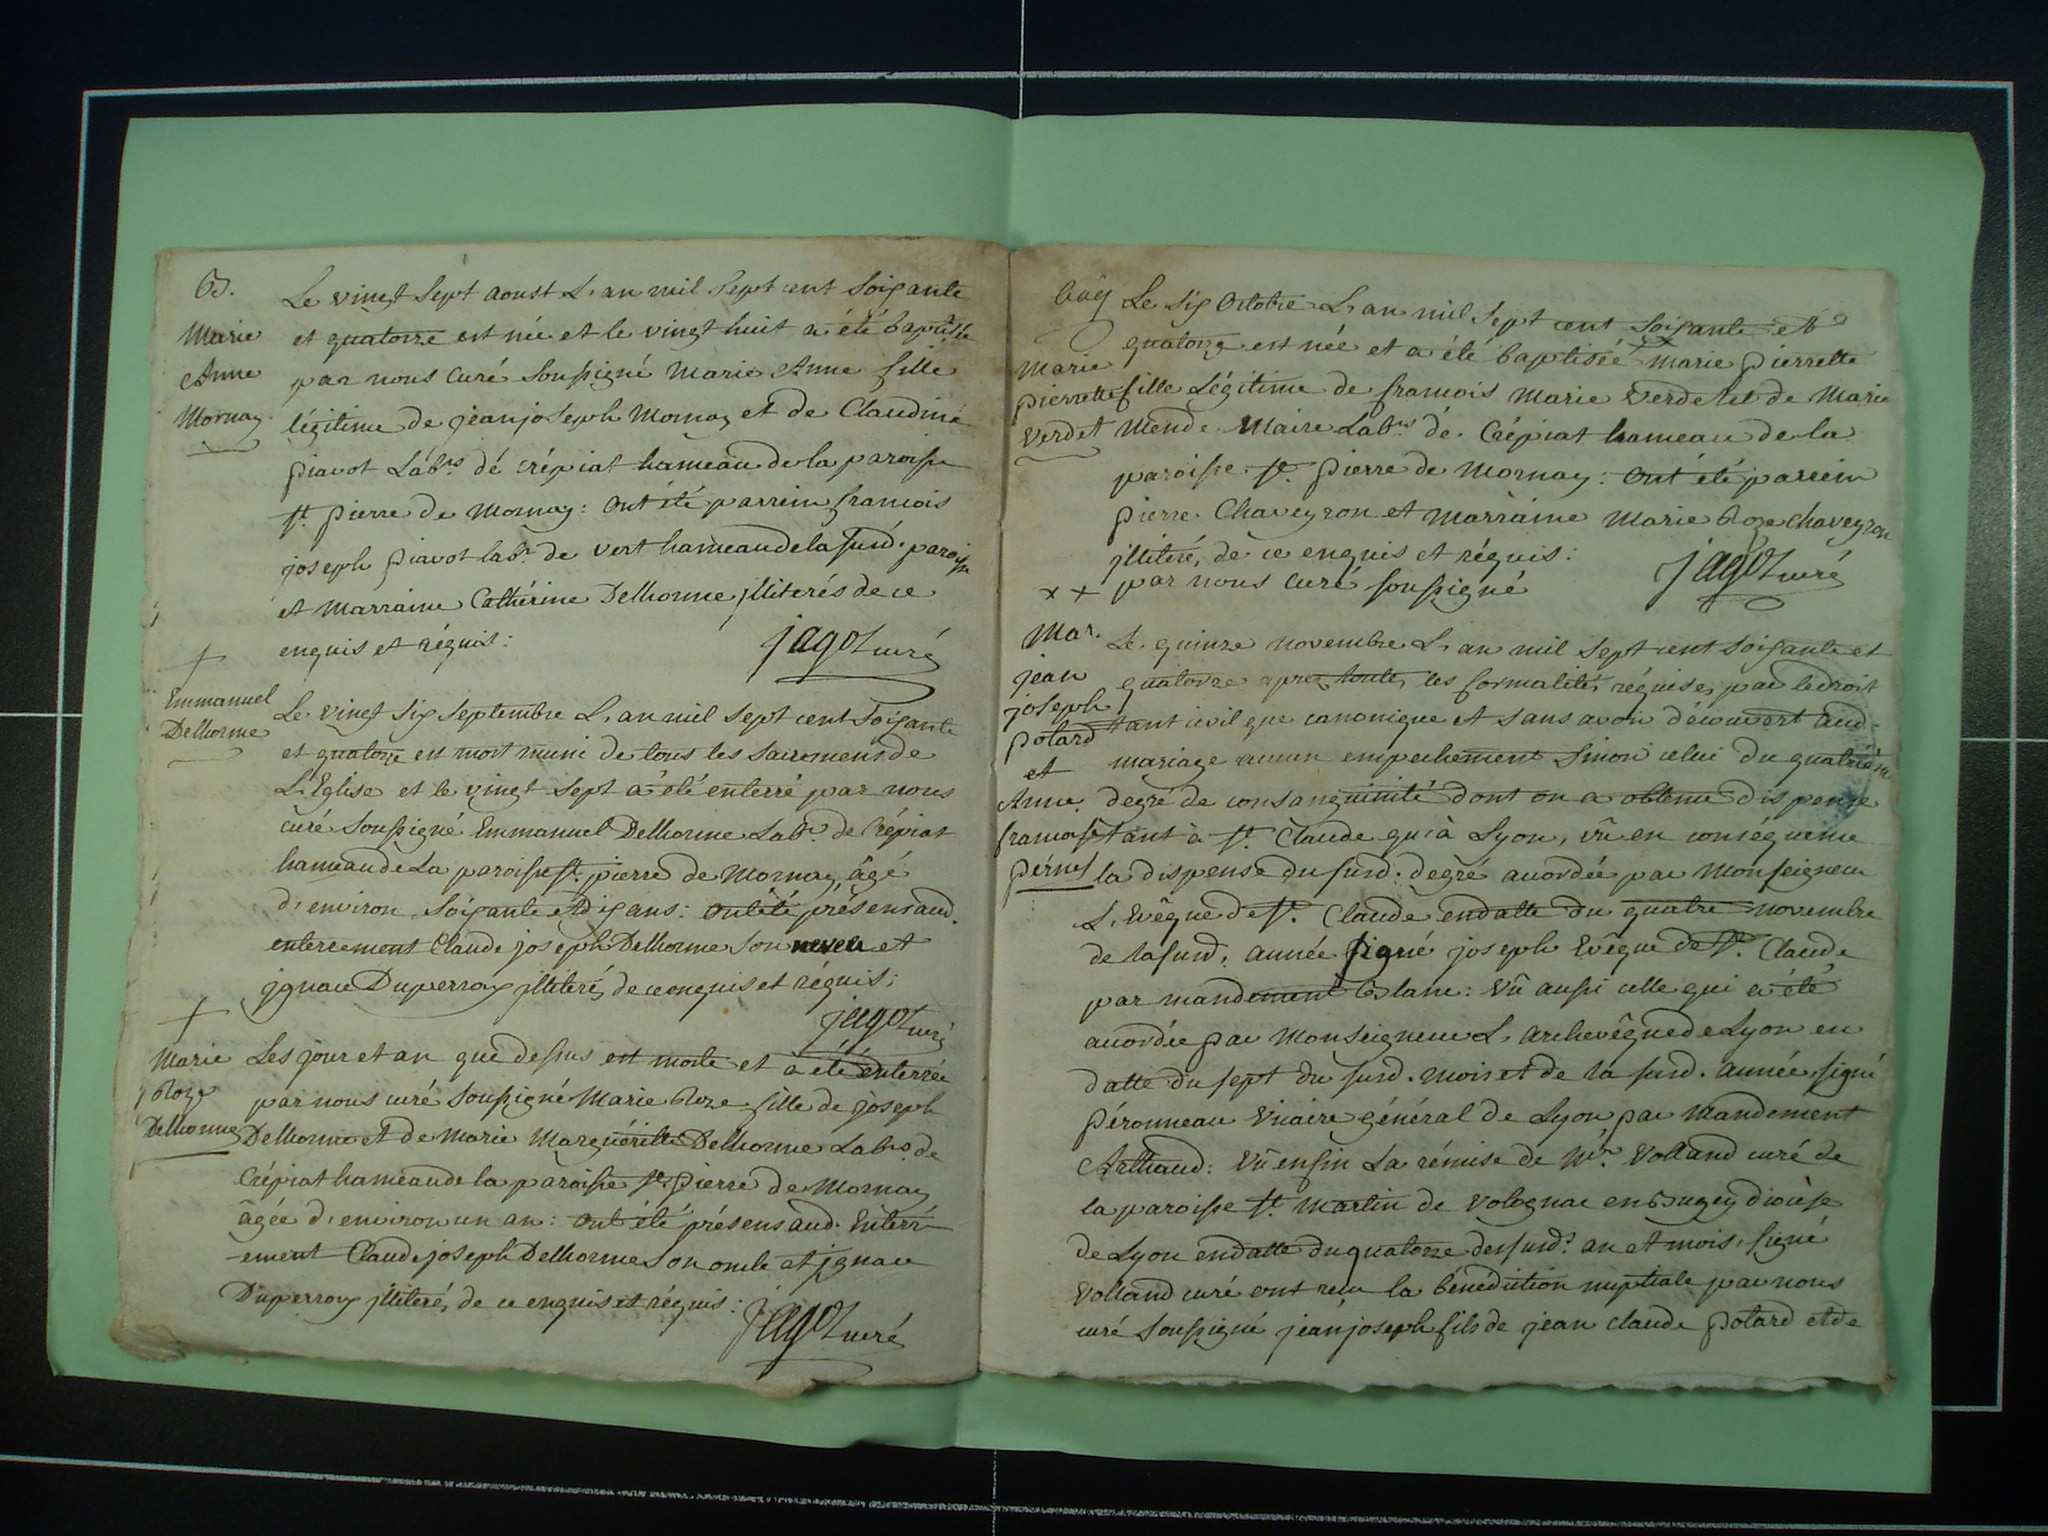 B.
Marie
Anne
Mornay
Le vingt sept aoust L'an mil sept cent soixante
et quatorze est née et le vingt huit a été baptisée
par nous curé soussigné Marie Anne fille
légitime de jean joseph Mornay et de Claudine
piavot Labrs dé crépiat hameau de la paroisse
st. pierre de Mornay: ont été parrein francois
joseph piavot labr. de vert hameau de la susd. paroisse
et marraine Catherine Delhorme jlliterés de ce
enquis et réquis:
jagot curé
Emmanuel
Delhorme
Le vingt six septembre L'an mil sept cent soixante
et quatorze est mort muni de tous les sacremens de
L'Eglise et le vingt sept a été enterré par nous
curé soussigné Emmanuel Delhorme Labr. de Crépiat
hameau de La paroisse st. pierre de Mornay, âgé
d'environ soixante et dix ans: ont été présens aud.
enterrement Claude joseph Delhorme son neveu et
jgnace Duperroux jlliterés de ce enquis et réquis;
jagot curé
Marie
Roze
Delhorme
Les jour et an que dessus est morte et a été enterrée
par nous curé soussigné Marie Roze fille de joseph
Delhorme et de Marie Marguéritte Delhorme Labrs. de
Crépiat hameau de la paroisse st. pierre de Mornay
âgée d'environ un an: ont été présens aud. Enterr-
-ement Claude joseph Delhorme son oncle et jgnace
Duperroux jlliterés de ce enquis et réquis:
jagot curé
Marie
pierrette
Verdet
Le six Octobre L'an mil sept cent soixante et
quatorze est née et a été baptisée Marie pierrette
fille Légitime de francois Marie Verdet et de Marie
Mende Maire Labrs dé Crépiat hameau de la
paroisse st. pierre de Mornay: ont été parrein
pierre Chaveyron et marraine Marie Roze chaveyron
jlliterés de ce enquis et réquis:
x x par nous curé soussigné
jagot curé
Mar.
jean
joseph
potard
et
Anne
francoise
pernet
Le quinze novembre L'an mil sept cent soixante et
quatorze apres toutes les formalités réquises par le droit
tant civil que canonique et sans avoir découvert aud.
mariage aucun empechement sinon celui du quatriéme
degré de consanguinité dont on a obtenu dispense
tant à st. Claude qu'à Lyon, vû en conséquence
la dispense du susd. degré accordée par Monseigneur
L'Evêque de st. Claude en datte du quatre novembre
de la susd. année signé joseph Evêque de st. Claude
par mandement Blanc: Vû aussi celle qui a été
accordée par Monseigneur L'archevêque de Lyon en
datte du sept du susd. mois et de la susd. année, signé
péronneau Vicaire général de Lyon, par Mandement
Arthaud: Vû enfin La rémise de Mr. Volland curé de
la paroisse st. Martin de Volognac en Bugey diocèse
de Lyon en datte du quatorze des susds. an et mois, signé
Volland curé ont recu la bénediction nuptiale par nous
curé soussigné jean joseph fils de jean claude potard et de